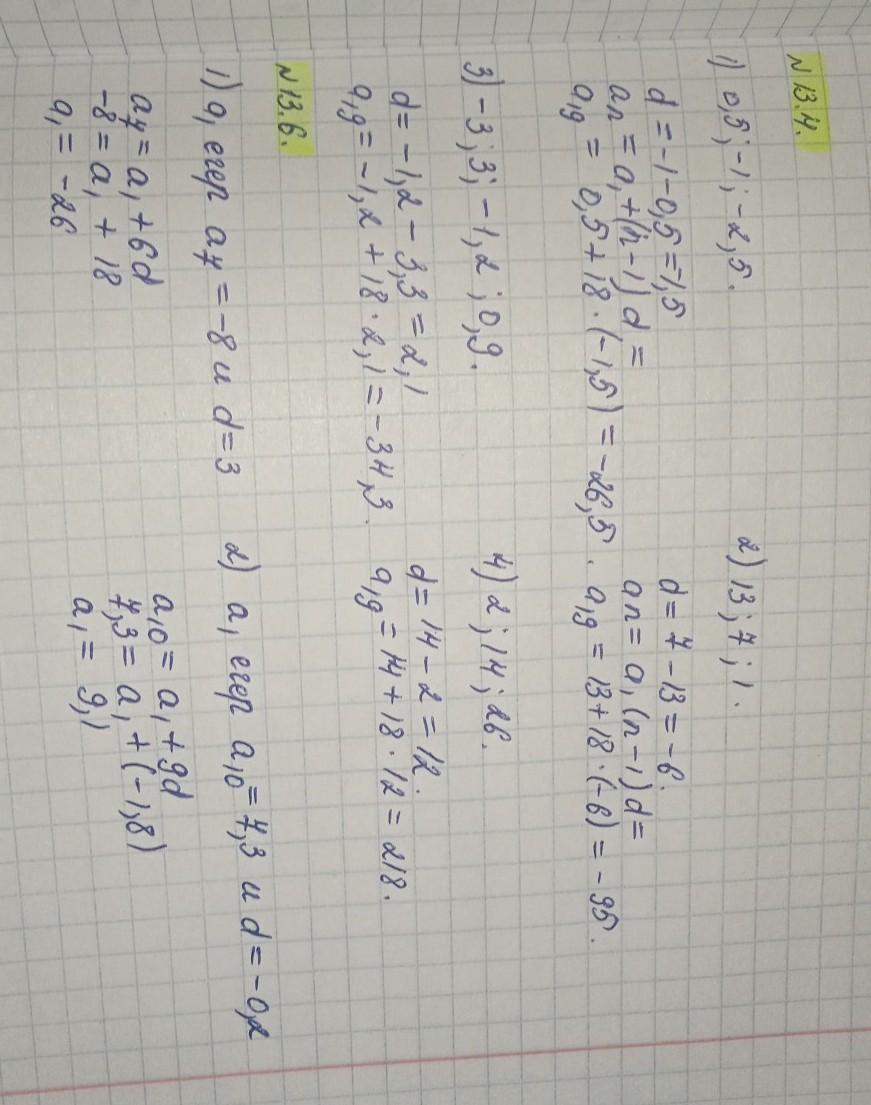 N13.4.
1) 0,5; -1; -2,5.
d = -1-0,5=-1,5
an = a1+(n-1) d =
a19 = 0,5+18·(-1,5) = -26,5.
2) 13; 7; 1.
d = 7-13 = -6.
an = a1(n-1)d =
a19 = 13+18·(-6) = -95.
3) -3,3; -1,2; 0,9.
d = -1,2 - 3,3 = 2,1
a19 = -1,2 + 18·2,1 = -34,3.
4) 2; 14; 26.
d = 14 - 2 = 12.
a19 = 14+18·12 = 218.
N13.6.
1) a1 егер a7 = -8 и d=3
a7 = a1 + 6d
-8 = a1 + 18
a1 = -26
2) a1 егер a10 = 7,3 и d = -0,2
a10 = a1 + 9d
7,3 = a1 + (-1,8)
a1 = 9,1